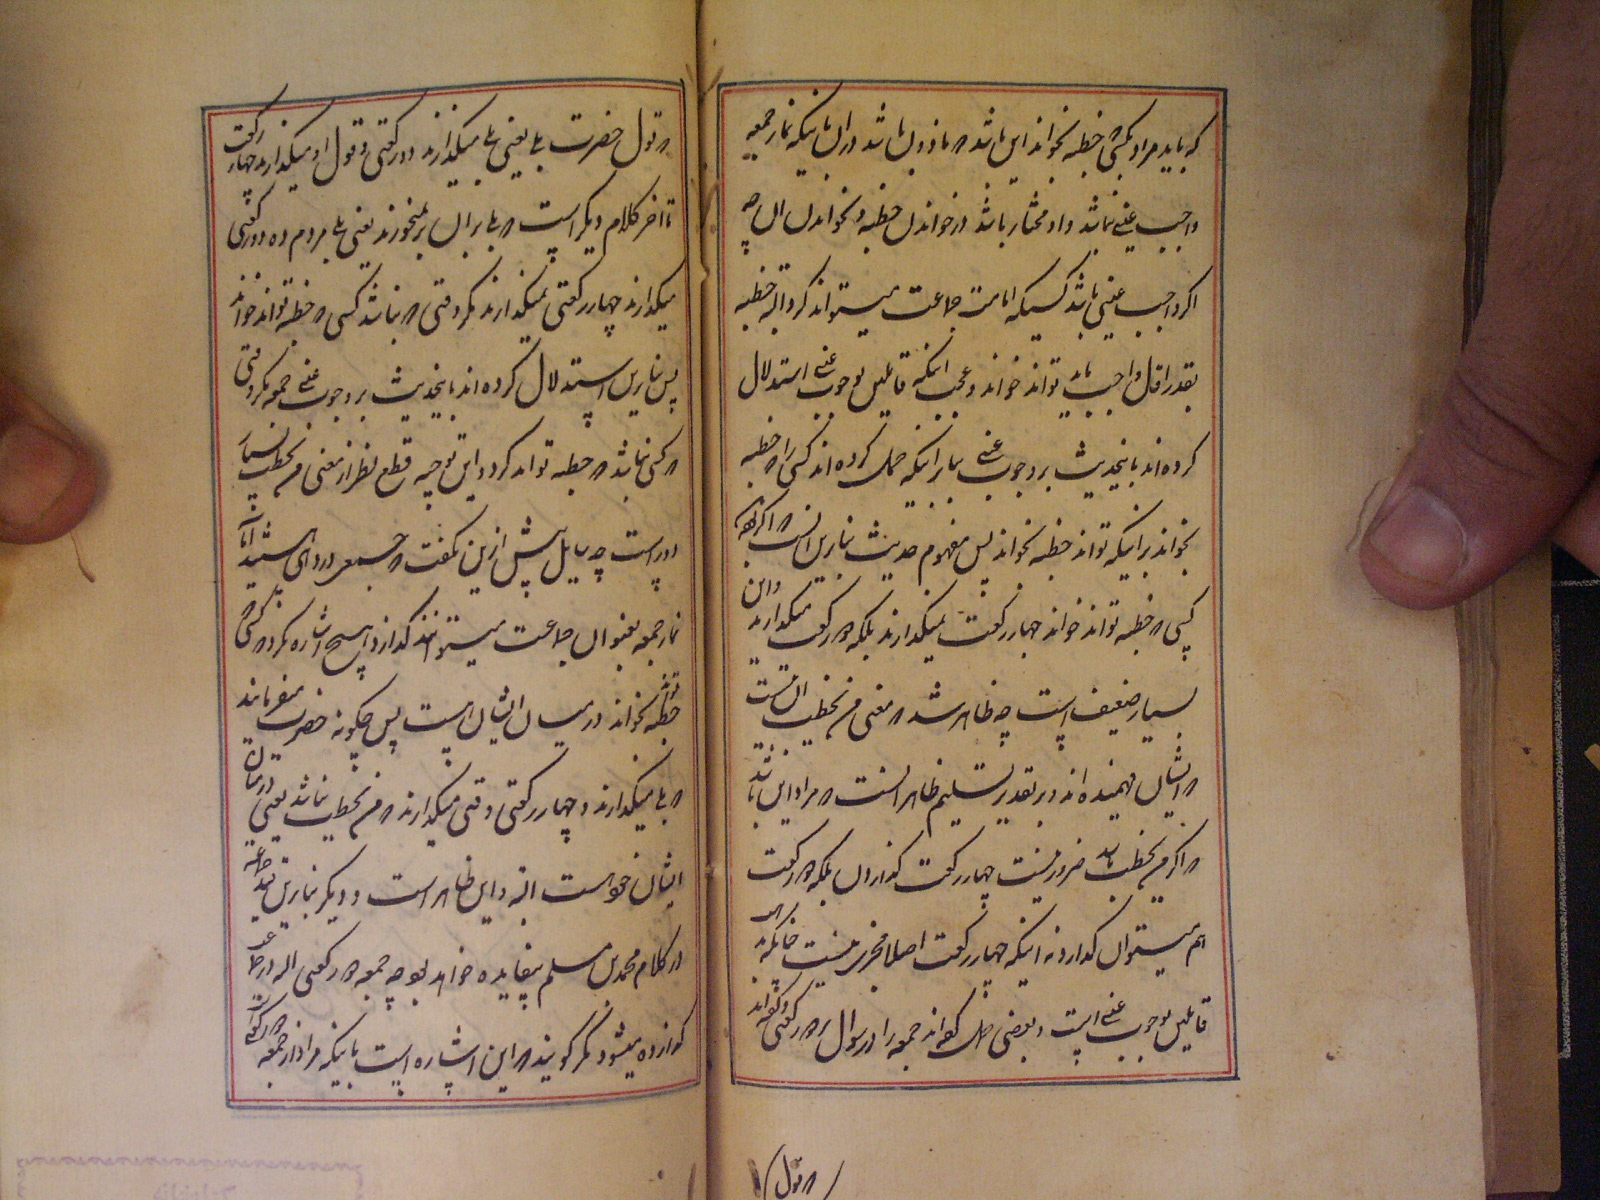 که باید مراد بکسی خطبه نخواند این باشد که ماذون باشد در آن بانیکه نماز جمعه
واجب عینی نباشد و او مختار باشد در خواندن خطبه و نخواندن آن چه
اگر واجب عینی باشد کسیکه امامت جماعت میتواند کرد البته خطبه
بقدر اقل واجب باید تواند خواند و عجب اینکه قائلین بوجوب عینی استدلال
کرده اند باینحدیث بر وجوب عینی بنابر اینکه حمل کرده اند کسی را که خطبه
بخواند بر اینکه تواند خطبه بخواند پس مفهوم حدیث بنابرین آنست که اگر
کسی که خطبه تواند خواند چهار رکعت نمیکذارند بلکه دو رکعت میکذارند و این
بسیار ضعیف است چه ظاهر شد که معنی من یخطب آن نیست
که ایشان فهمیده اند و بر تقدیر تسلیم ظاهر آنست که مراد این باشد
که اگر من یخطب باشد ضرور نیست چهار رکعت گذاردن بلکه دو رکعت
هم میتوان گذارد نه اینکه چهار رکعت اصلا مجزی نیست چنانکه
قائلین بوجوب عینی است و بعضی حمل کرده اند جمعه را در سوال بر دو رکعتی و گفته اند
که قول
که قول حضرت بلی یعنی بلی میکذارند دو رکعتی و قول او میکذارند چهار رکعت
تا آخر کلام دیگر است که بلی بر آن بر نمیخورند یعنی بلی مردم ده دو رکعتی
میکذارند چهار رکعتی نمیکذارند مکر وقتی که نباشد کسی که خطبه تواند خواند
پس بنابرین استدلال کرده اند باینحدیث بر وجوب عینی جمعه مکر وقتی
که کسی نباشد که خطبه تواند کرد و این توجیه قطع نظر از معنی من یخطب بسیار
دور است چه سایل پیش ازین نگفت که جمعی در دهی هستند آیا
نماز جمعه بعنوان جماعت میتوانند گذارد و هیچ اشاره نکرد که کسی که
خطبه تواند بخواند در میان ایشان هست پس چکونه حضرت میفرمایند
که بلی میکذارند و چهار رکعتی وقتی میکذارند که من یخطب نباشد یعنی در میان
ایشان خواست البته و این ظاهر است و دیگر بنابرین قید جماعة
در کلام محمد بن مسلم بیفایده خواهد بود چه جمعه دو رکعتی البته در جماعت
گذارده میشود مکر گویند که این اشاره است بانیکه مراد از جمعه دو رکعتی